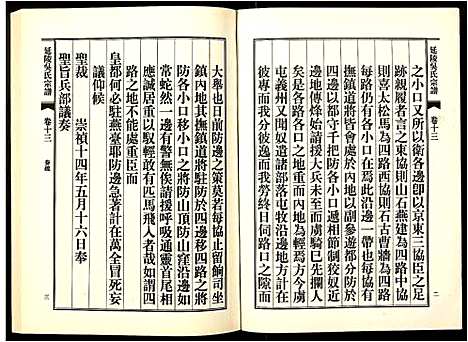 延陵吳氏宗譜
卷十三
二
之小口又所以衛各邊卽以京東三協臣之足
跡親履者言之東協則山石燕建為四路中協
則喜太松馬為四路西協則石古曹牆為四路
撫鎮道將皆會處於內地各邊一帶也每協有
四路口以都守千把防各小口相片節制狡如近
邊地傳烽始請援大兵未至而虜騎已先攔人
矣與其各邊各路口之地重而內地為輕為方今虜
屯義州又聞奴遣諸部落屯牧沿邊地方計在
彼專而我分而我勞終日伺路口之隙而
大舉也日前防邊之策莫若每協止留餉司坐
鎮內地其撫鎮道將駐防於四邊移四路之將
防各小口移小口之將防山頂防山窪沿邊如
常蛇然一邊有警無俟請援呼吸通靈首尾相
應誠居重以馭輕敢有匹馬飛人者謂如四
路之地不處重臣而
皇都何必駐燕臺耶防邊急著計在萬全冒死妄
議仰候
聖裁 崇禎十四年五月十六日奉
聖旨兵部議奏
延陵吳氏宗譜
卷十三
奏疏
三